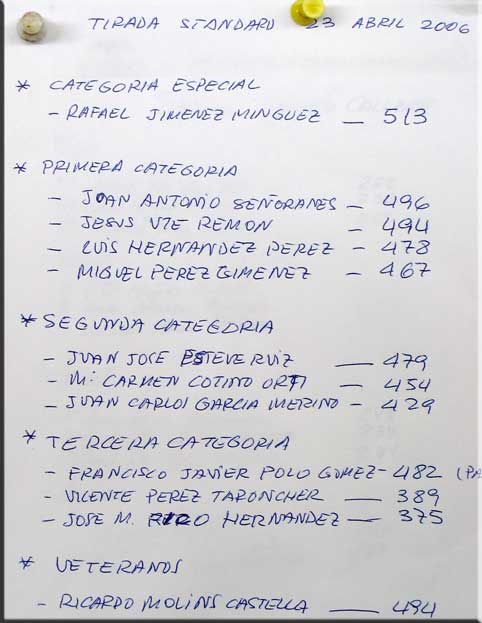 TIRADA STANDARD 23 ABRIL 2006
* CATEGORIA ESPECIAL
- RAFAEL JIMENEZ MINGUEZ — 513
* PRIMERA CATEGORIA
- JOAN ANTONIO SEÑORANES - 496
- JESUS VTE REMON - 494
- LUIS HERNANDEZ PEREZ - 478
- MIGUEL PEREZ GIMENEZ - 467
* SEGUNDA CATEGORIA
- JUAN JOSE ESTEVE RUIZ — 479
- Mª CARMEN COTINO ORTI — 454
- JUAN CARLOS GARCIA MERINO - 429
* TERCERA CATEGORIA
- FRANCISCO JAVIER POLO GOMEZ - 482 (PA
- VICENTE PEREZ TARONCHER — 389
- JOSE M. RICO HERNANDEZ — 375
* VETERANOS
- RICARDO MOLINS CASTELLA — 494